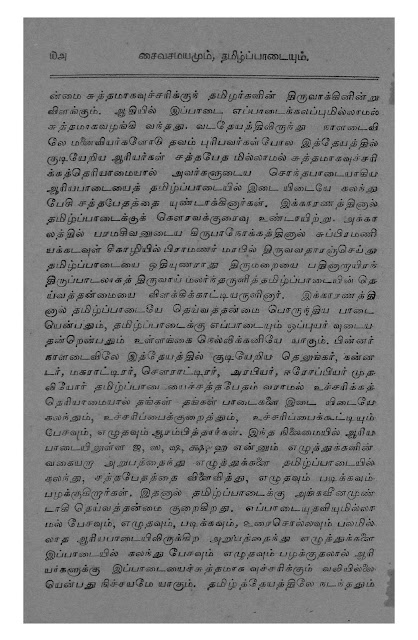 ௰௮ சைவசமயமும், தமிழ்ப்பாடையும்.
ன்மை சுத்தமாகவுச்சரிக்குந் தமிழர்களின் திருவாக்கினின்று
விளங்கும். ஆதியில் இப்பாடை எப்பாடைக்கலப்புமில்லாமல்
சுத்தமாகவழங்கி வந்தது. வடதேயத்திலிருந்து நாளடைவி
லே மனைவியர்களோடு தவம் புரிபவர்கள்போல இத்தேயத்தில்
குடியேறிய ஆரியர்கள் சத்தபேத மில்லாமல் சுத்தமாகவுச்சரி
க்கத்தெரியாமையால் அவர்களுடைய சொந்தபாடையாகிய
ஆரியபாடையைத் தமிழ்ப்பாடையில் இடை யிடையே கலந்து
பேசி சத்தபேதத்தை யுண்டாக்கினார்கள். இக்காரணத்தினால்
தமிழ்ப்பாடைக்குக் கௌரவக்குறைவு உண்டாயிற்று. அக்கா
லத்தில் பரமசிவனுடைய கிருபாநோக்கத்தினால் சுப்பிரமணி
யக்கடவுள் சீகாழியில் பிராமணர் மரபில் திருவவதாரஞ்செய்து
தமிழ்ப்பாடையை ஓதியுணராது திருமறையை பதினாறாயிரந்
திருப்பாடலாகத் திருவாய் மலர்ந்தருளித்தமிழ்ப்பாடையின் தெ
ய்வத்தன்மையை விளக்கிக்காட்டியருளினார். இக்காரணத்தி
னால் தமிழ்ப்பாடையே தெய்வத்தன்மை பொருந்திய பாடை
யென்பதும், தமிழ்ப்பாடைக்கு எப்பாடையும் ஒப்புயர் வுடைய
தன்றென்பதும் உள்ளங்கை நெல்லிக்கனியே யாகும். பின்னர்
காளடைவிலே இத்தேயத்தில் குடியேறிய தெலுங்கர், கன்ன
டர், மகராட்டிரர், சௌராட்டிரர், அரபியர், ஈரோப்பியர் முத
லியோர் தமிழ்ப்பாடையைச்சத்தபேதம் வராமல் உச்சரிக்கத்
தெரியாமையால் தங்கள் தங்கள் பாடைகளை இடை யிடையே
கலந்தும், உச்சரிப்பைக்குறைத்தும், உச்சரிப்பைக்கூட்டியும்
பேசவும், எழுதவும் ஆரம்பித்தார்கள். இந்த நிலைமையில் ஆரிய
பாடையிலுள்ள ஜ, ஸ, ஷ, க்ஷ, ஹ என்னும் எழுத்துக்களின்
வகையரு அறுபத்தைந்து எழுத்துக்களை தமிழ்ப்பாடையில்
கலந்து, சத்தபேதத்தை விளைவித்து, எழுதவும் படிக்கவும்
பழக்குகிறார்கள். இதனால் தமிழ்ப்பாடைக்கு அங்கவீனமுண்
டாகி தெய்வத்தன்மை குறைகிறது. எப்பாடையுதவியுமில்லா
மல் பேசவும், எழுதவும், படிக்கவும், உரைசொல்லவும் பலமில்
லாத ஆரியபாடையிலிருக்கிற அறுபத்தைந்து எழுத்துக்களை
இப்பாடையில் கலந்து பேசவும் எழுதவும் பழக்குதலால் ஆரி
யர்களுக்கு இப்பாடையைச்சுத்தமாக வுச்சரிக்கும் வலிவில்லை
யென்பது நிச்சயமே யாகும். தமிழ்த்தேயத்திலே நடந்ததும்